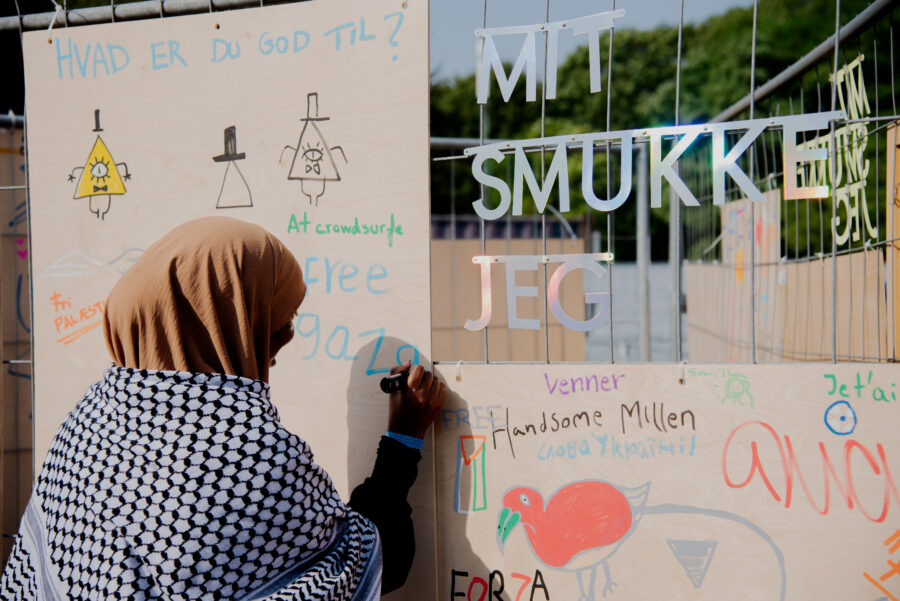 HVAD ER DU GOD TIL?
At crowdsurfe
Free
gaza
Fri
PALÆST
MIT
SMUKKE
JEG
MIT
SMUKKE
JEG
venner
Jet'ai
FREE
Handsome Millen
слава Україні!
FOR7A